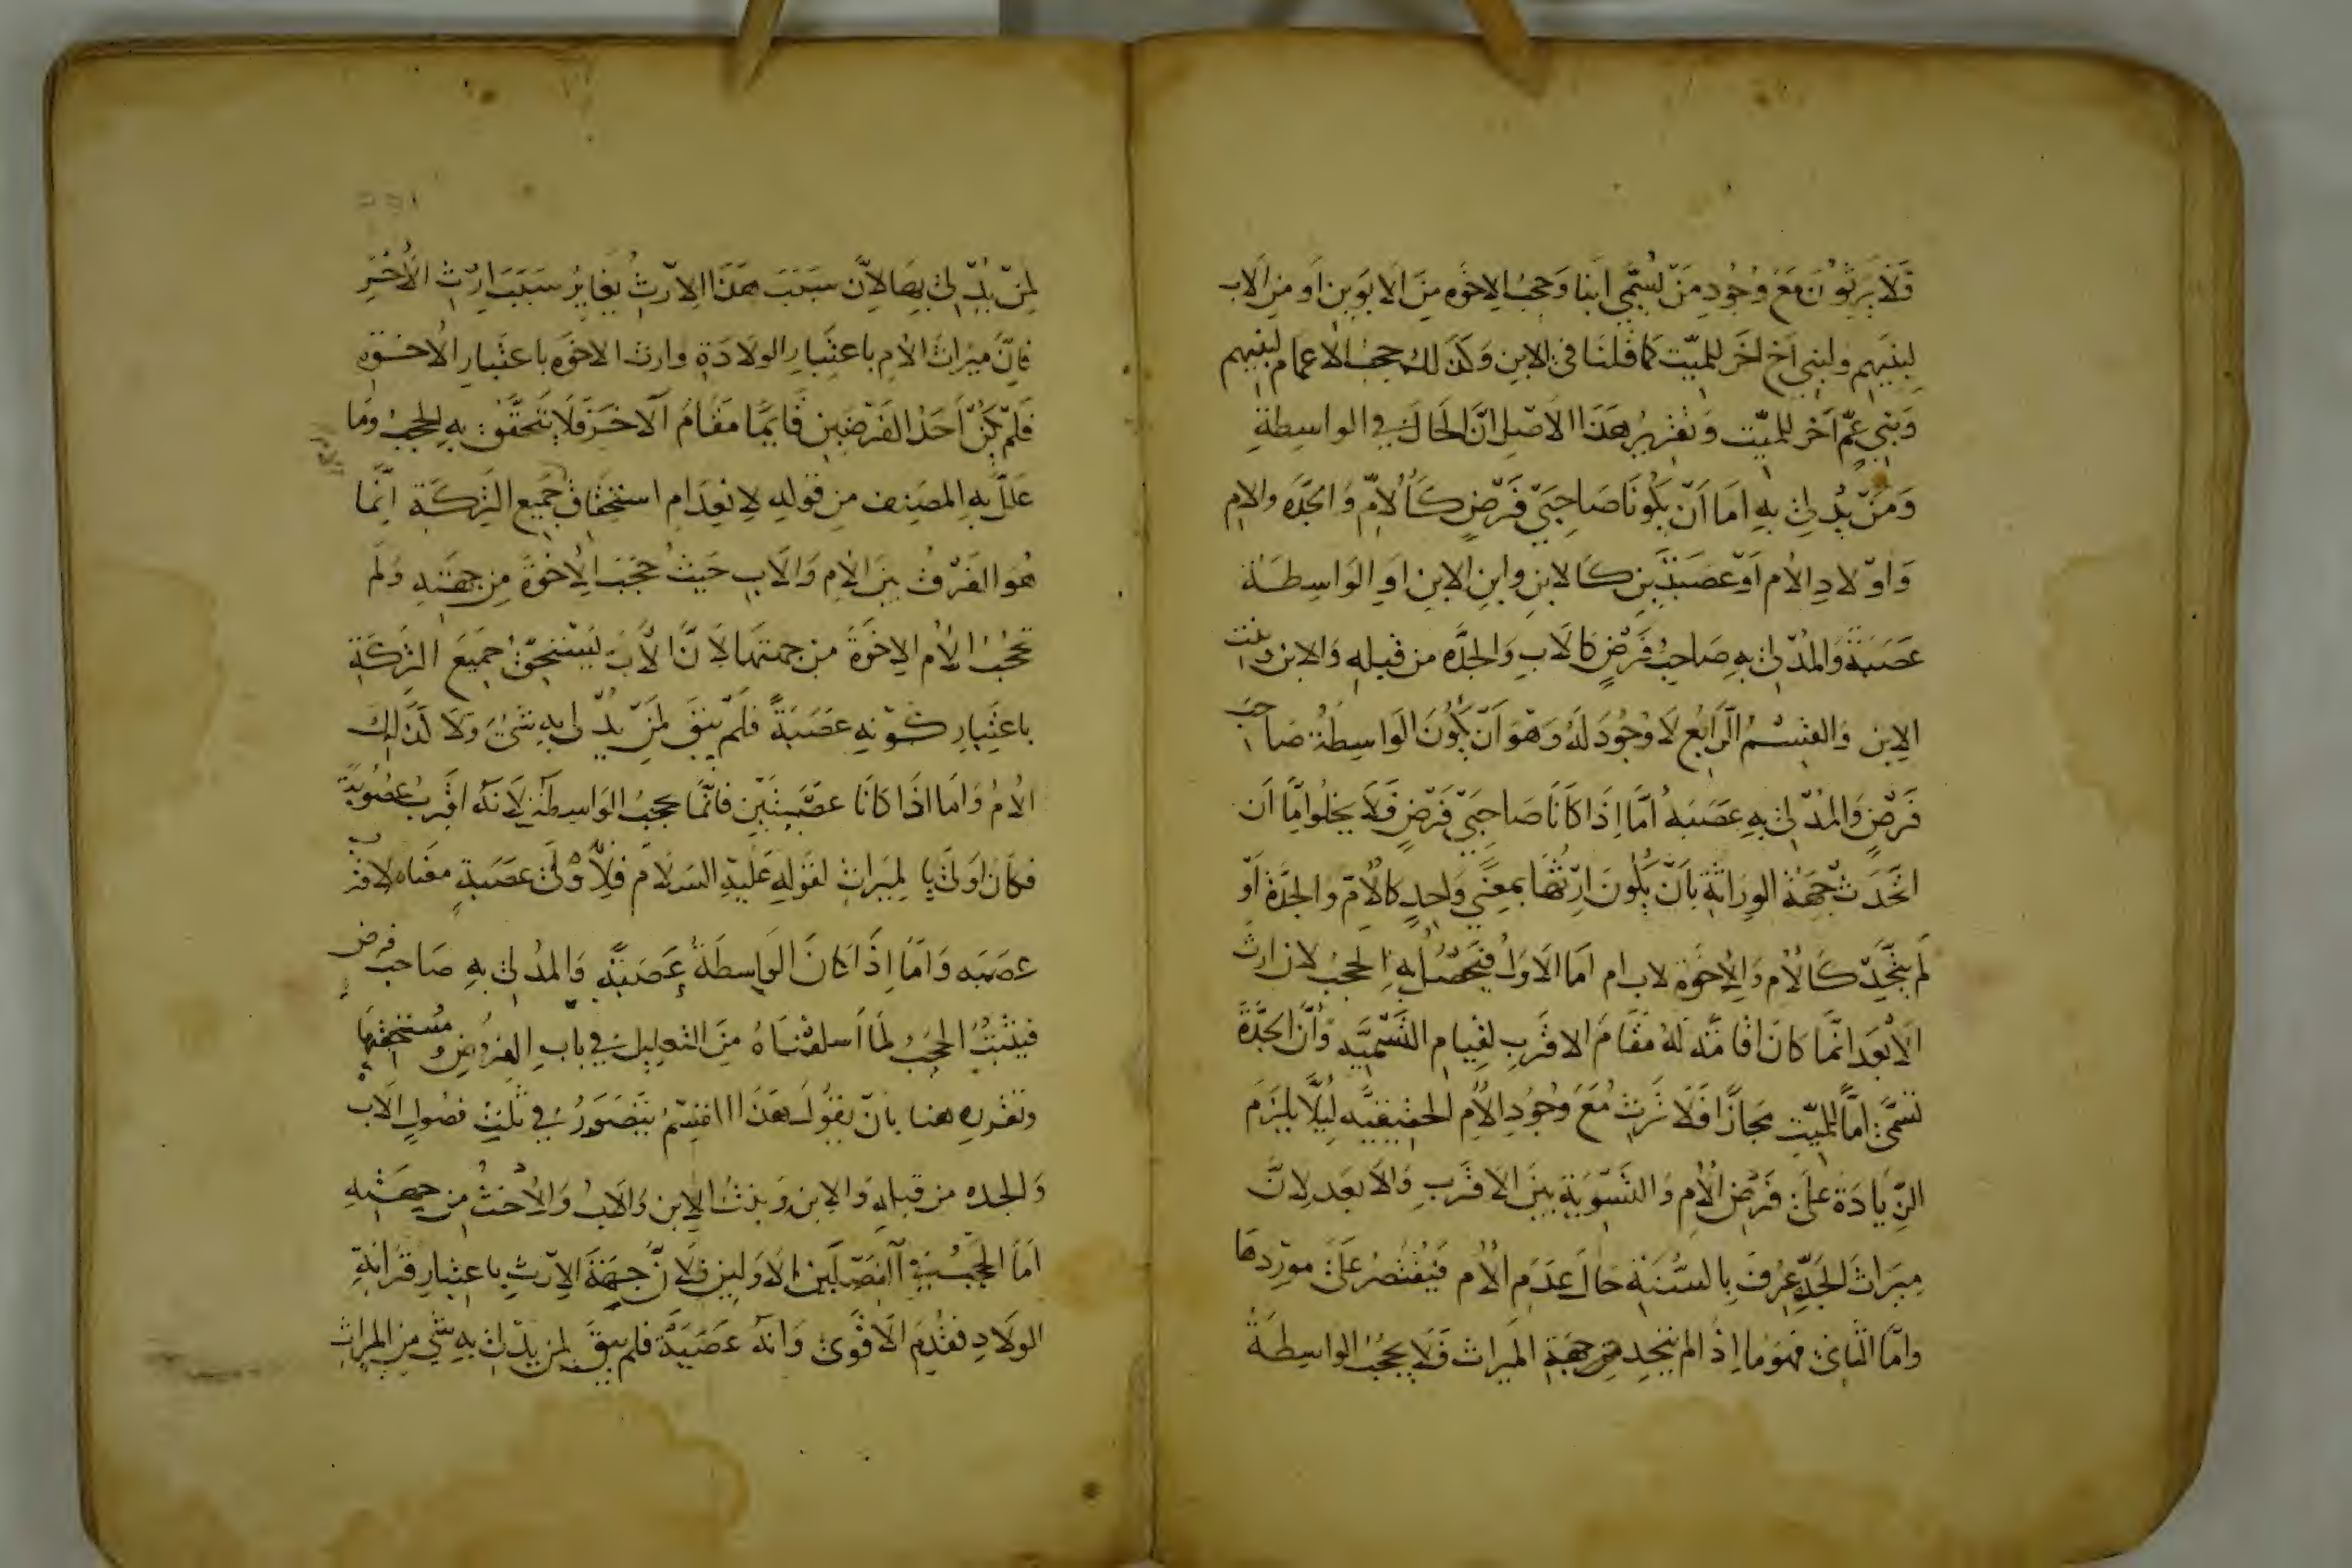 فَلَا يَرِثُونَ مَعَ وُجُودِ مَنْ يُسَمَّى ابنا وَحجبُ الاِخوَه مِنَ الاَبَوَينِ اَو مِنَ الاَب
لِبَنِيهِم وَلِبَنِي اَخٍ اخَر لِلميّت كَمَا قُلنَا في الابنِ وَكَذَلك حجبُ الاَعمام لِبَنِيهِم
وَبَنِي عَمٍّ اَخر للميّت وَتَقرِيرُ هَذَا الاَصلِ انَّ الحَالَ في الواسِطَةِ
وَمَنْ يُدْلِى بِهِ امَا اَنْ يَكُونَا صَاحِبَيْ فَرْضٍ كَالْاُمِّ وَالجَدَّه وَالام
وَاوْلادِ الاُم اَوْ عَصَبَتَيْنِ كَالابنِ وابنِ الابنِ اَوِ الوَاسِطَة
عَصَبَةٌ وَالمُدْلى بِهِ صَاحِبُ فَرْضٍ كَالَابِ وَالجدَّه من قبلِهِ وَالابن وبنت
الاِبنِ وَالقِسْمُ الرَّابعُ لَا وُجُودَ لَهُ وَهوَ اَنْ يَكُونَ الوَاسِطَةُ صَاحبَ
فَرْضٍ وَالمُدْلى بِهِ عَصَبَه اَمَّا اِذَا كَانَا صَاحِبَيْ فَرْضٍ فَلَا يَخلُوا مَّا اَن
اتَّحَدَتْ جِهَةُ الوِرَاثَةِ بِاَنْ يَكُونَ اِرْثُهَا بِمَعنًى وَاحِدٍ كَالاُمِّ وَالجَدَّةِ اَوْ
لَم يتَّحِدْ كَالاُم وَالاِخوَةِ لاب ام اَما الاَوَلُ فيَحصُلُ بِهِ الحجبُ لان ارثَ
الاَبعَد انَّمَا كانَ اقَامَةً لَهُ مَقَامَ الاقرَبِ لِقِيَامِ التَّسْمِيَّه وَاَنَّ الجَدَّةَ
تسَمَّى اُمًّا لِلميّتِ مَجَازًا فَلَا تَرِثُ مَعَ وُجُودِ الاُم الحقِيقِيَّه لِئَلَّا يَلزَم
الزِّيَادَةَ عَلى فَرْضِ الاُمِ وَالتَّسْوِيَةِ بَينَ الاَقرَبِ وَالاَبعَد لِانَّ
مِيرَاثَ الجَدَّةِ عُرِفَ بِالسُّنَّةِ حَالَ عَدَمِ الاُم فَيُقْتَصَرُ عَلَى مَورِدِهَا
وامَّا الثّانِى فهوَ مَا اِذَا لم يتّحِد من جِهَةِ المِيرَاث فَلَا يحجبُ الواسِطَةُ
لِمَنْ يُدْلى بِهَا لاِنَّ سَبَبَ هَذَا الاِرْث يُغَايِرُ سَبَبَ ارْثِ الاُخَر
فاِنَّ مِيرَاثَ الاُم باعتِبَارِ الوِلَادَةِ وارث الاخوَه باعتِبَارِ الاُخوّةِ
فَلَمْ يَكُنْ اَحَدُ الفَرْضَينِ قَايمًا مَقَامَ الَاخَر فَلَا يَتَحَقَّقُ بِهِ الحجبُ وَمَا
عَلَّلَ بِهِ المصَنِف مِن قَولِهِ لِانْعِدَامِ استِحقَاقِ جَميع التَّركَةِ اِنَّمَا
هُوَ الفَرْقُ بَينَ الاُم وَالاَبِ حَيثُ حَجَبَ الاِخوَةَ مِن جِهَتِهِ وَلَم
تحجُبُ الاُم الاِخوَةَ من جِهَتِهَا لِاَنَّ الاَبَ يَسْتَحِقُّ جَمِيعَ التركَةِ
باعتِبَارِ كَوْنِهِ عَصَبَةً فَلَمْ يبقَ لِمَنْ يُدْلى بِهِ شَىْءٌ وَلَا كَذَلِكَ
الاُمُ وَامَا اذَا كَانَا عَصَبَتَيْنِ فانَّمَا يحجبُ الوَاسِطَة لِاَنَّهُ اقْرَبُ عُصُوبَةً
فَكَانَ اَوْلَى بِالمِيرَاثِ لقَولِهِ عَلَيْهِ السَّلَام فَلِاَوْلَى عَصَبَةٍ مَعنَاه لاقرب
عصَبَه وَاَمَّا اِذَا كَانَ الوَاسِطَةُ عَصَبَةً وَالمُدْلى بِهِ صَاحبَ فرض
فَيثبُتُ الحجبُ لِمَا اَسلَفْنَاهُ مِنَ التعلِيلِ في بابِ الفرُوضِ وَمُستَحِقّيهَا
وتقريرِه هنا بِاَنْ يَقُولَ هَذَا القسْمُ يَتَصَوَّرُ في ثَلثِ فصُولٍ الاَب
وَالجده من قبلِهِ وَالاِبن وَبنْتُ الاِبن وَالاَبُ وَالاُختُ مِن جِهَتِهِ
اَمَّا الحَجبُ في الفَصْلَينِ الاَوَّلَينِ فَلاَنَّ جِهَةَ الاِرْثِ باعتِبَارِ قَرَابَةِ
الوِلَادِ فقُدِّمَ الاَقْوَى وَانهُ عَصَبَةٌ فلَم يبقَ لمن يدْلى بِهِ شَيْ من المِيراث